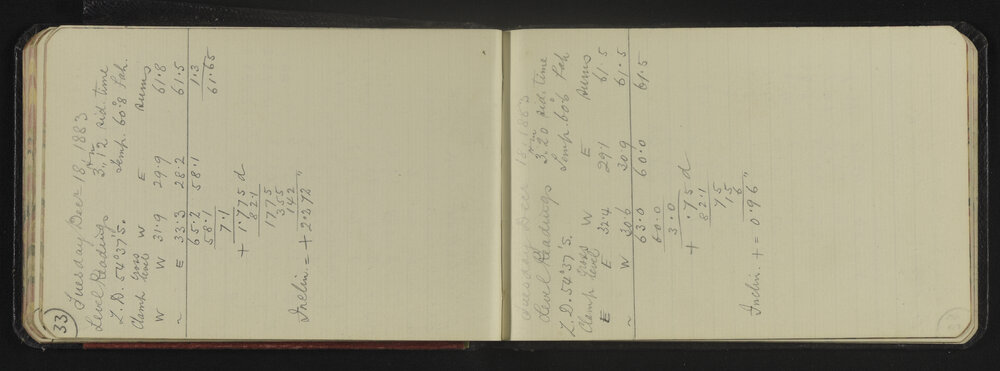 33
Tuesday Decr 18, 1883
Level Readings 3h 12m sid. time
Z.D. 54° 37'.5. Temp. 60°.8 Fah.
Clamp Cross level W E Sums
W W 31.9 29.9 61.8
~ E 33.3 28.2 61.5
65.2 58.1 1.3
58.1 61.65
7.1
+ 1.775 d
82.1
1775
355
142
Inclin. = + 2.272"
Tuesday Decr 18, 1883
Level Readings 3h 20m sid. time
Z.D. 54° 37'.5. Temp. 60°.6 Fah.
Clamp Cross level W E Sums
E E 32.4 29.1 61.5
~ W 30.6 30.9 61.5
63.0 60.0 61.5
60.0
3.0
+ .75 d
82.1
75
15
6
Inclin. + = 0.96"